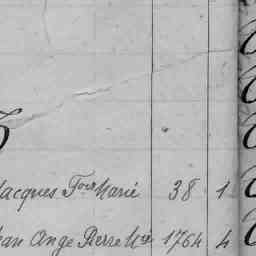 Jacques Fois Marie 38 1
Jean Ange Pierre Mie 1764 4